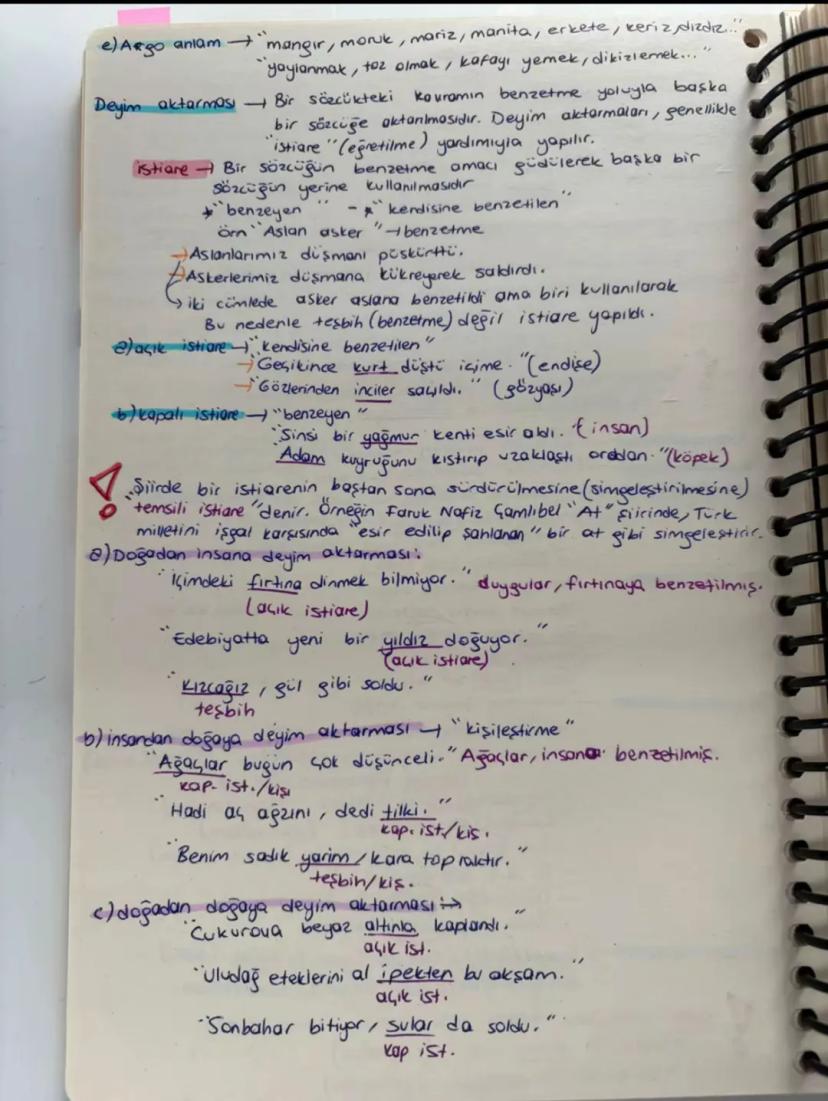 e) Argo anlam → "mangır, moruk, mariz, manita, erkete, keriz, dızdız..."
"yaylanmak, toz olmak, kafayı yemek, dikizlemek..."
Deyim aktarması → Bir sözcükteki kavramın benzetme yoluyla başka
bir sözcüğe aktarılmasıdır. Deyim aktarmaları, genellikle
"istiare" (eğretilme) yardımıyla yapılır.
istiare → Bir sözcüğün benzetme amacı güdülerek başka bir
sözcüğün yerine kullanılmasıdır
* "benzeyen" - * "kendisine benzetilen"
örn "Aslan asker" → benzetme
→ Aslanlarımız düşmanı püskürttü.
→ Askerlerimiz düşmana kükreyerek saldırdı.
→ iki cümlede asker aslana benzetildi ama biri kullanılarak
Bu nedenle teşbih (benzetme) değil istiare yapıldı.
a) açık istiare → "kendisine benzetilen"
→ "Geçikince kurt düştü içime." (endişe)
→ "Gözlerinden inciler saçıldı." (gözyaşı)
b) kapalı istiare → "benzeyen"
"Sinsi bir yağmur kenti esir aldı. (insan)
"Adam kuyruğunu kıstırıp uzaklaştı ordan." (köpek)
! Şiirde bir istiarenin baştan sona sürdürülmesine (simgeleştirilmesine)
"temsili istiare" denir. Örneğin Faruk Nafiz Çamlıbel "At" şiirinde, Türk
milletini işgal karşısında "esir edilip şahlanan" bir at gibi simgeleştirir.
a) Doğadan insana deyim aktarması:
"İçimdeki fırtına dinmek bilmiyor." duygular, fırtınaya benzetilmiş.
(açık istiare)
"Edebiyatta yeni bir yıldız doğuyor."
(açık istiare)
"Kızcağız, gül gibi soldu."
teşbih
b) insandan doğaya deyim aktarması → "kişileştirme"
"Ağaçlar bugün çok düşünceli." Ağaçlar, insana benzetilmiş.
kap. ist./kişi
"Hadi aç ağzını, dedi tilki."
kap. ist/kiş.
"Benim sadık yarim / kara topraktır."
teşbih/kiş.
c) doğadan doğaya deyim aktarması: →
"Çukurova beyaz altınla kaplandı."
açık ist.
"Uludağ eteklerini al ipekten bu akşam."
açık ist.
"Sonbahar bitiyor, sular da soldu."
kap ist.